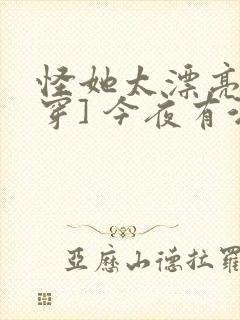 怪她太漂亮
穿] 今夜有
亞歷山德拉羅